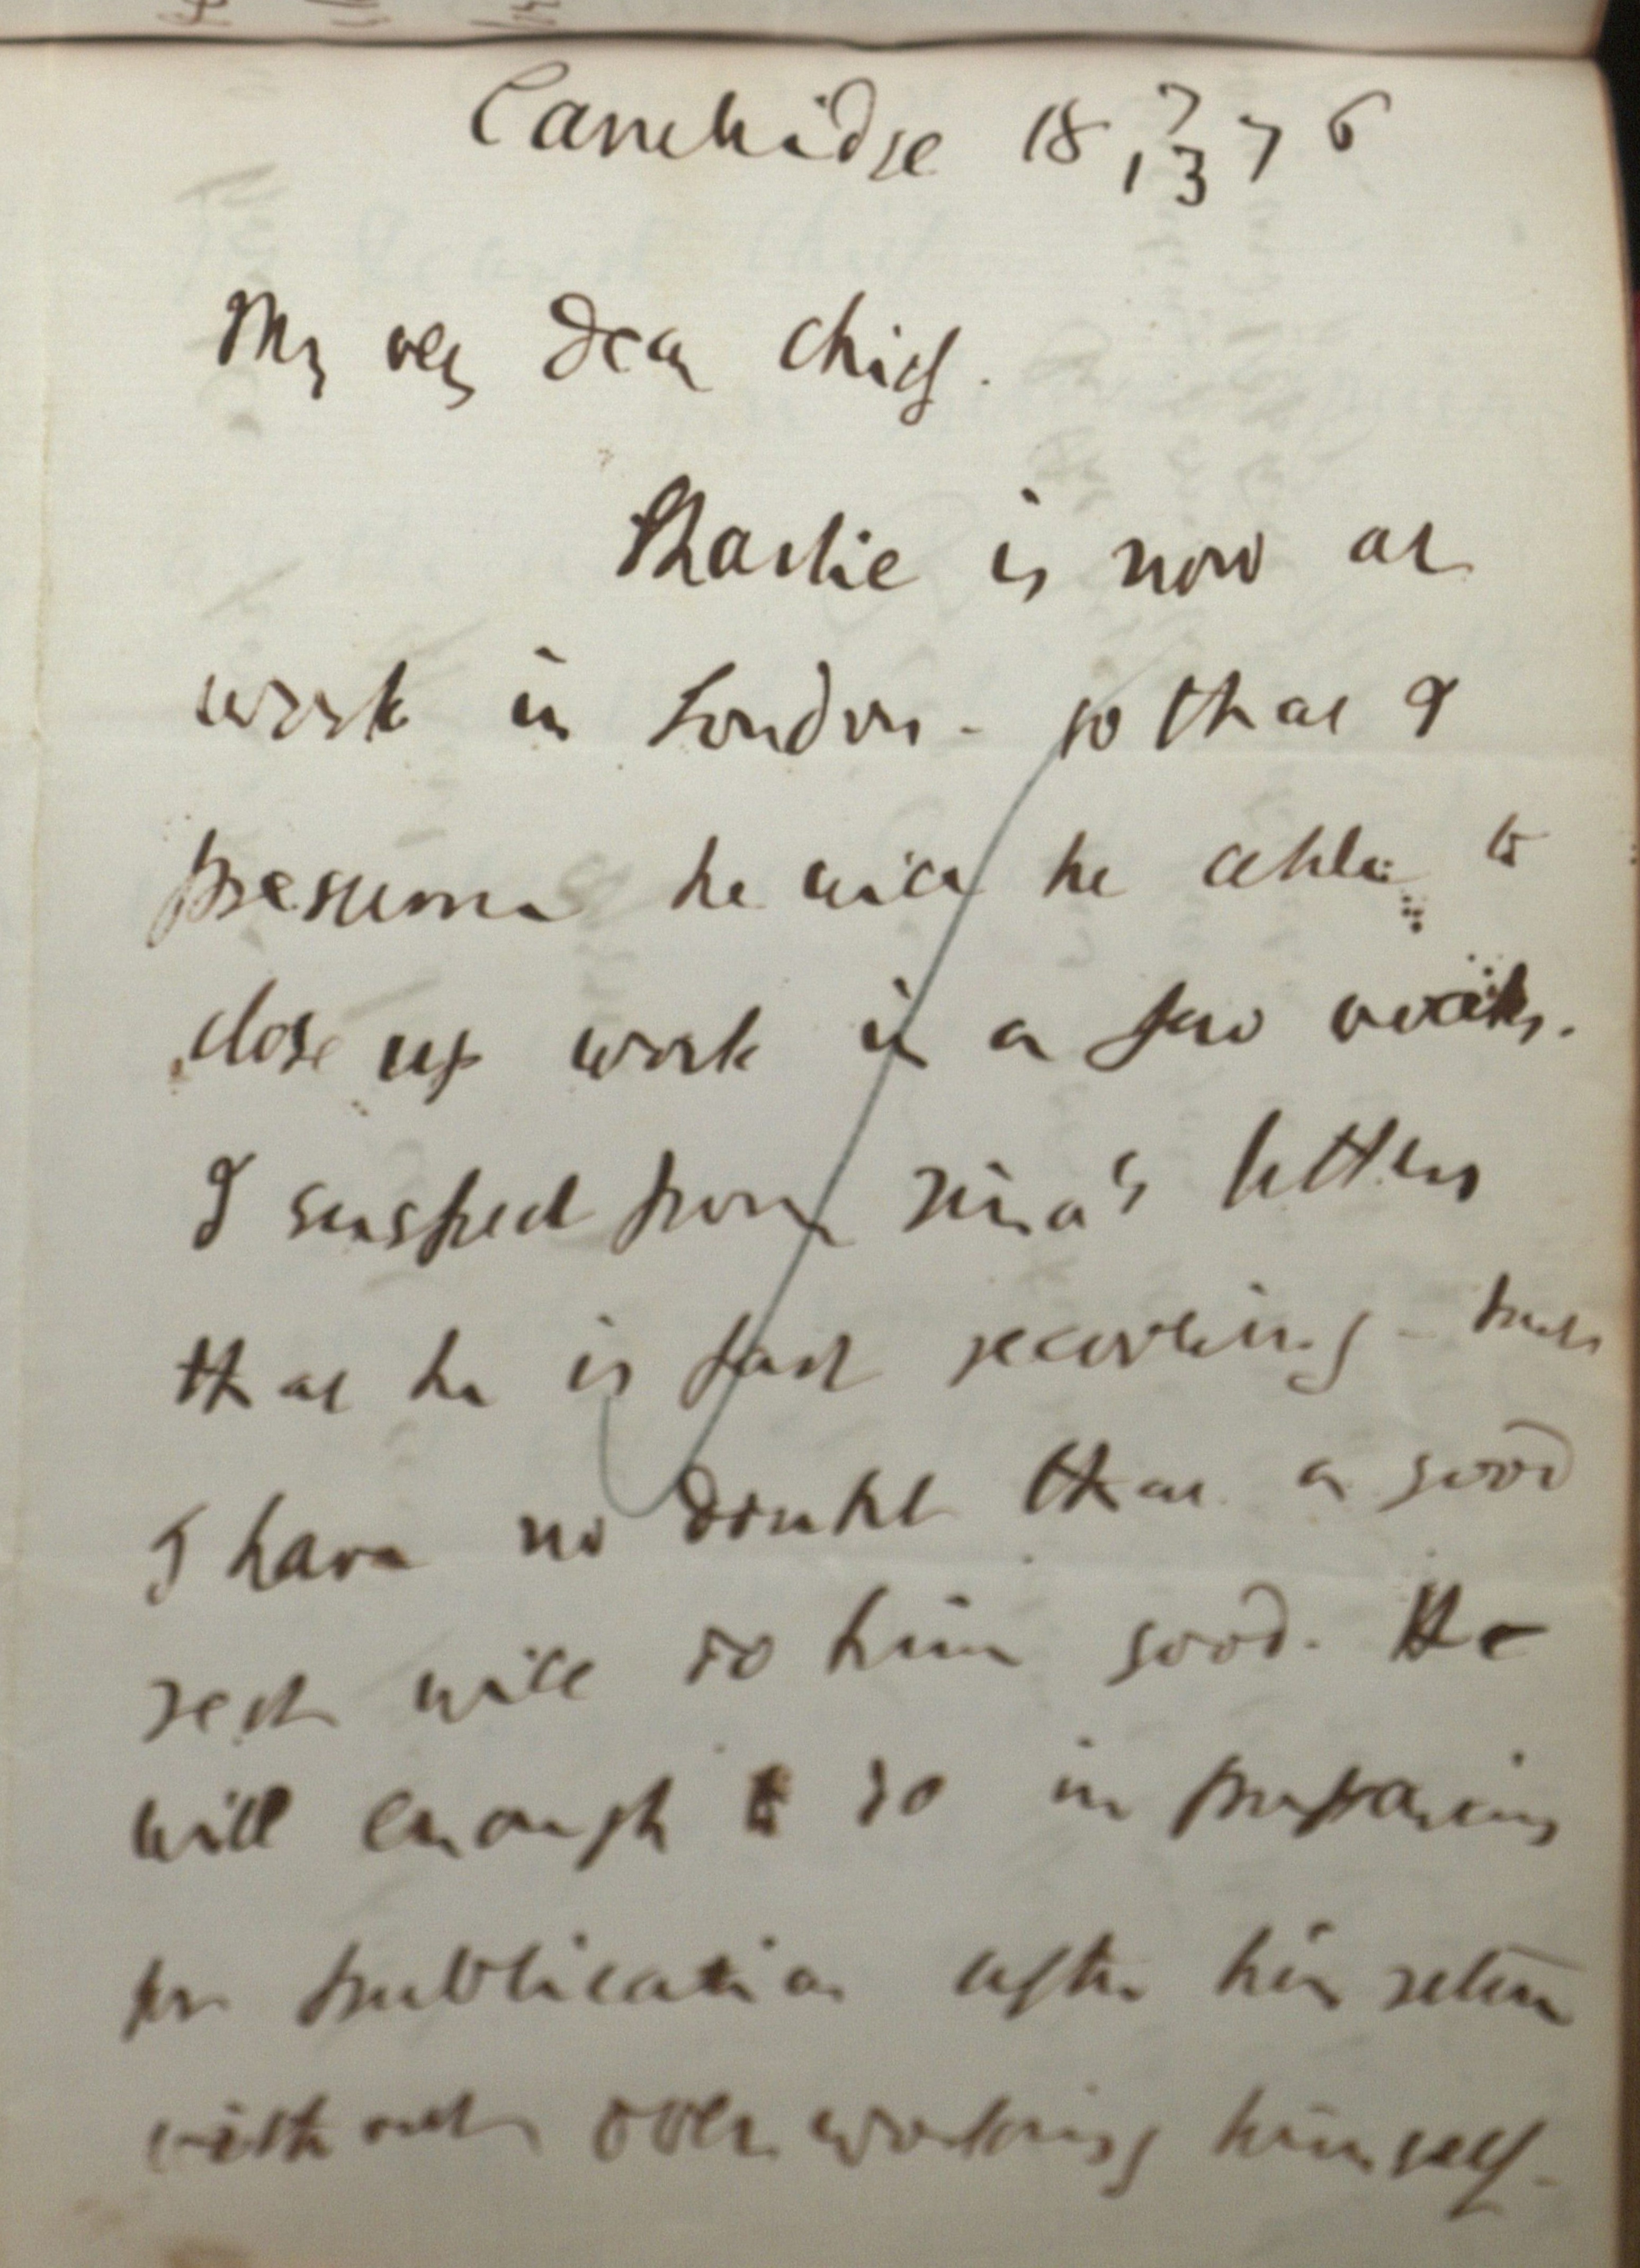 Cambridge 18 7/13 76
My very dear Chief.
Charlie is now at
work in London - so that I
presume he will be able to
close up work in a few weeks.
I suspect from Zina's letters
that he is fast recovering - but
I have no doubt that a good
rest will do him good. He
will enough to do in preparing
for publication after his return
without over working himself -